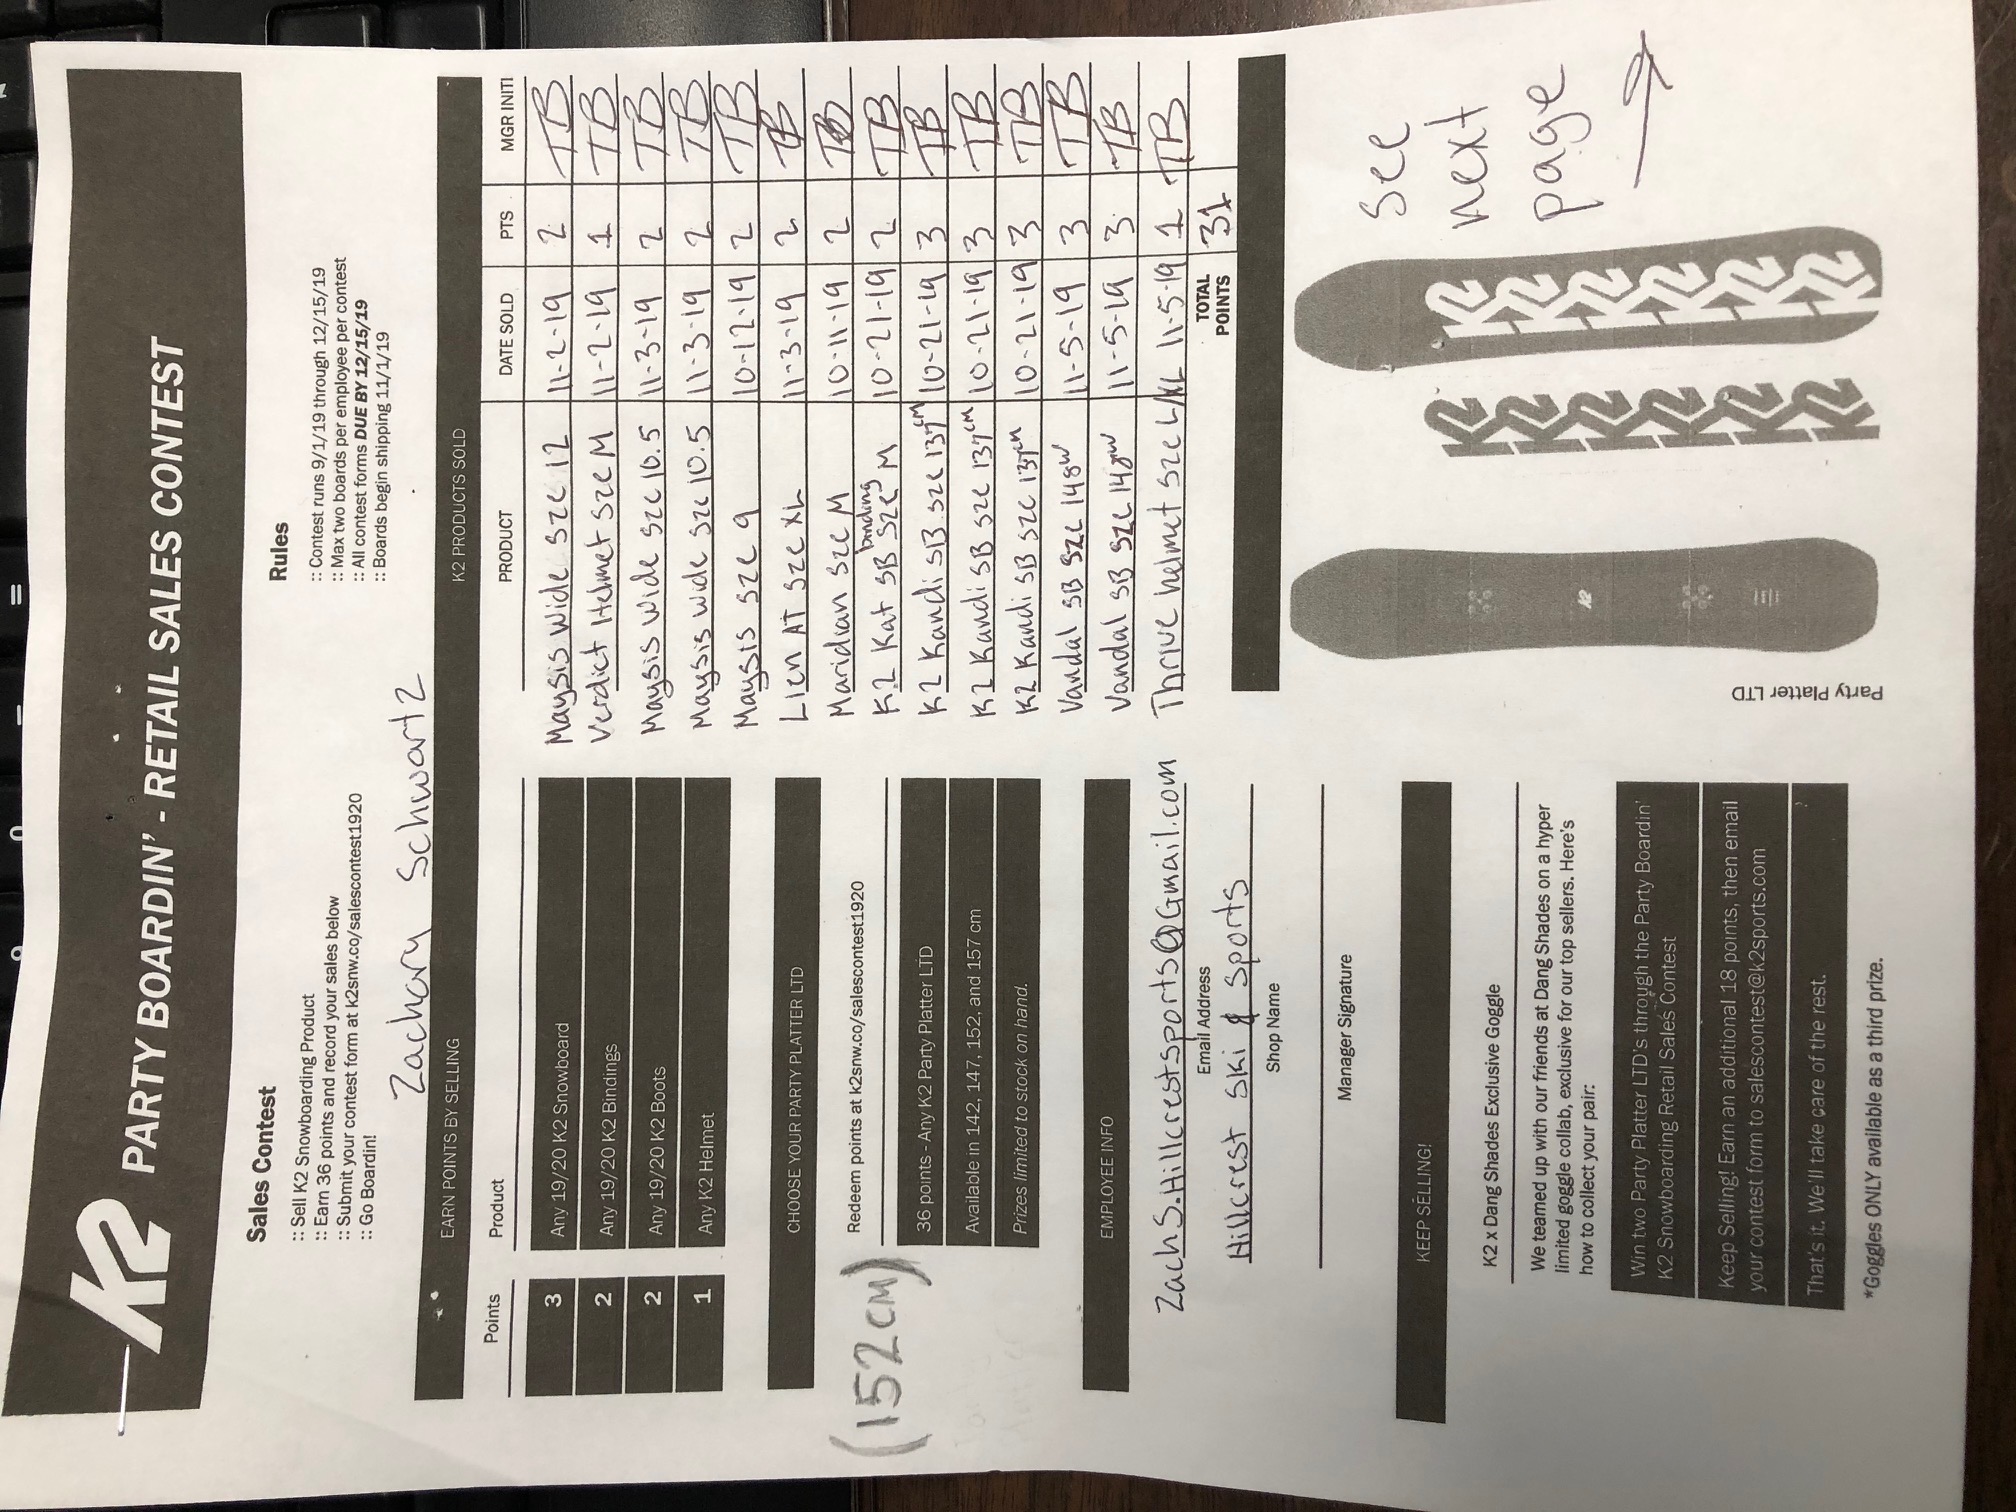 9 0 - =
K2 PARTY BOARDIN' - RETAIL SALES CONTEST
Sales Contest
:: Sell K2 Snowboarding Product
:: Earn 36 points and record your sales below
:: Submit your contest form at k2snw.co/salescontest1920
:: Go Boardin!
Rules
:: Contest runs 9/1/19 through 12/15/19
:: Max two boards per employee per contest
:: All contest forms DUE BY 12/15/19
:: Boards begin shipping 11/1/19
Zachary Schwartz
EARN POINTS BY SELLING
Points Product
3 Any 19/20 K2 Snowboard
2 Any 19/20 K2 Bindings
2 Any 19/20 K2 Boots
1 Any K2 Helmet
CHOOSE YOUR PARTY PLATTER LTD
(152CM)
Redeem points at k2snw.co/salescontest1920
36 points - Any K2 Party Platter LTD
Available in 142, 147, 152, and 157 cm
Prizes limited to stock on hand.
EMPLOYEE INFO
ZachS.Hillcrestsports@Gmail.com
Email Address
Hillcrest Ski & Sports
Shop Name
Manager Signature
KEEP SELLING!
K2 x Dang Shades Exclusive Goggle
We teamed up with our friends at Dang Shades on a hyper
limited goggle collab, exclusive for our top sellers. Here's
how to collect your pair:
Win two Party Platter LTD's through the Party Boardin'
K2 Snowboarding Retail Sales Contest
Keep Selling! Earn an additional 18 points, then email
your contest form to salescontest@k2sports.com
That's it. We'll take care of the rest.
*Goggles ONLY available as a third prize.
K2 PRODUCTS SOLD
PRODUCT DATE SOLD PTS MGR INITI
Maysis Wide sze 12 11-2-19 2 TB
Verdict Helmet sze M 11-2-19 1 TB
Maysis Wide sze 10.5 11-3-19 2 TB
Maysis Wide sze 10.5 11-3-19 2 TB
Maysis sze 9 10-12-19 2 TB
Lien AT sze XL 11-3-19 2 TB
Maridian sze M 10-11-19 2 TB
K2 Kat SB binding sze M 10-21-19 2 TB
K2 Kandi SB sze 137cm 10-21-19 3 TB
K2 Kandi SB sze 137cm 10-21-19 3 TB
K2 Kandi SB sze 137cm 10-21-19 3 TB
Vandal SB sze 148w 11-5-19 3 TB
Vandal SB sze 148w 11-5-19 3 TB
Thrive helmet sze L/XL 11-5-19 1 TB
TOTAL
POINTS 31
See
next
page
Party Platter LTD
K2
K2 K2 K2 K2 K2 K2
K2 K2 K2 K2 K2 K2